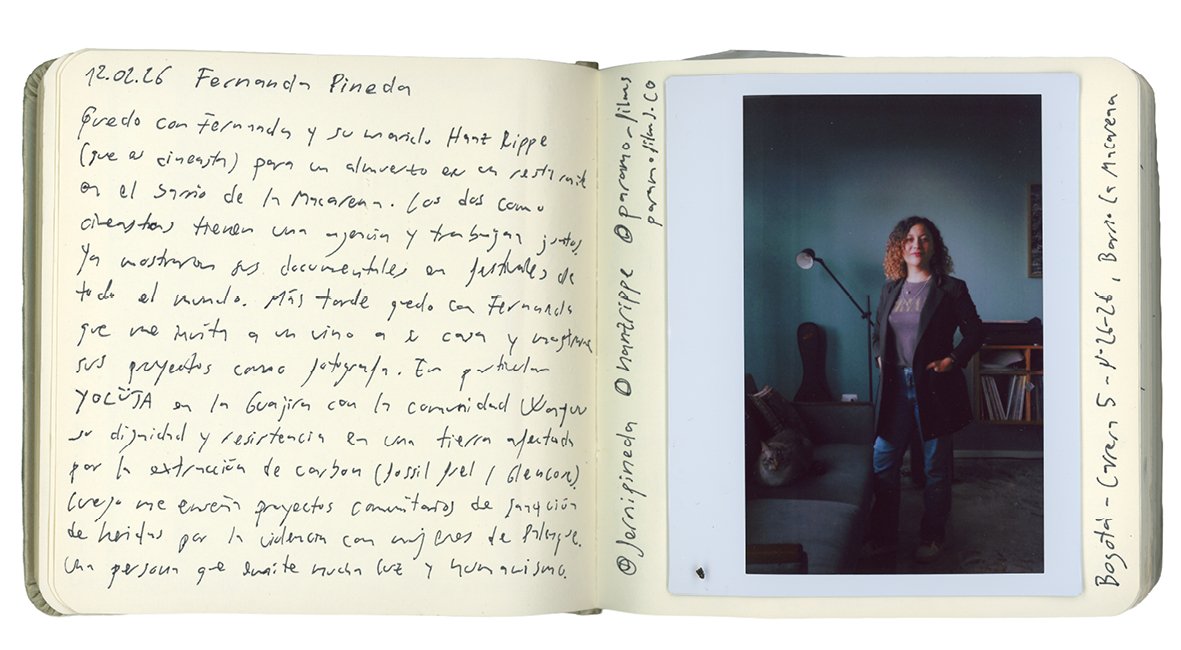 12.02.26 Fernanda Pineda
Quedo con Fernanda y su marido Hanz Rippe
(que es cineasta) para un almuerzo en un restaurante
en el barrio de la Macarena. Los dos como
cineastas tienen una agencia y trabajan juntos.
Ya mostraron sus documentales en festivales de
todo el mundo. Más tarde quedo con Fernanda
que me invita a un vino a su casa y mostrarme
sus proyectos como fotografa. En particular
YOLÜJA en la Guajira con la comunidad Wayuu
su dignidad y resistencia en una tierra afectada
por la extracción de carbon (fossil fuel / Glencore)
Luego me enseña proyectos comunitarios de sanación
de heridas por la violencia con mujeres de Palenque.
Una persona que emite mucha luz y humanismo.
@fernipineda @hanzrippe @paramo-films
paramofilms.co
Bogotá - Carrera 5 - Nº 26-26, Barrio La Macarena